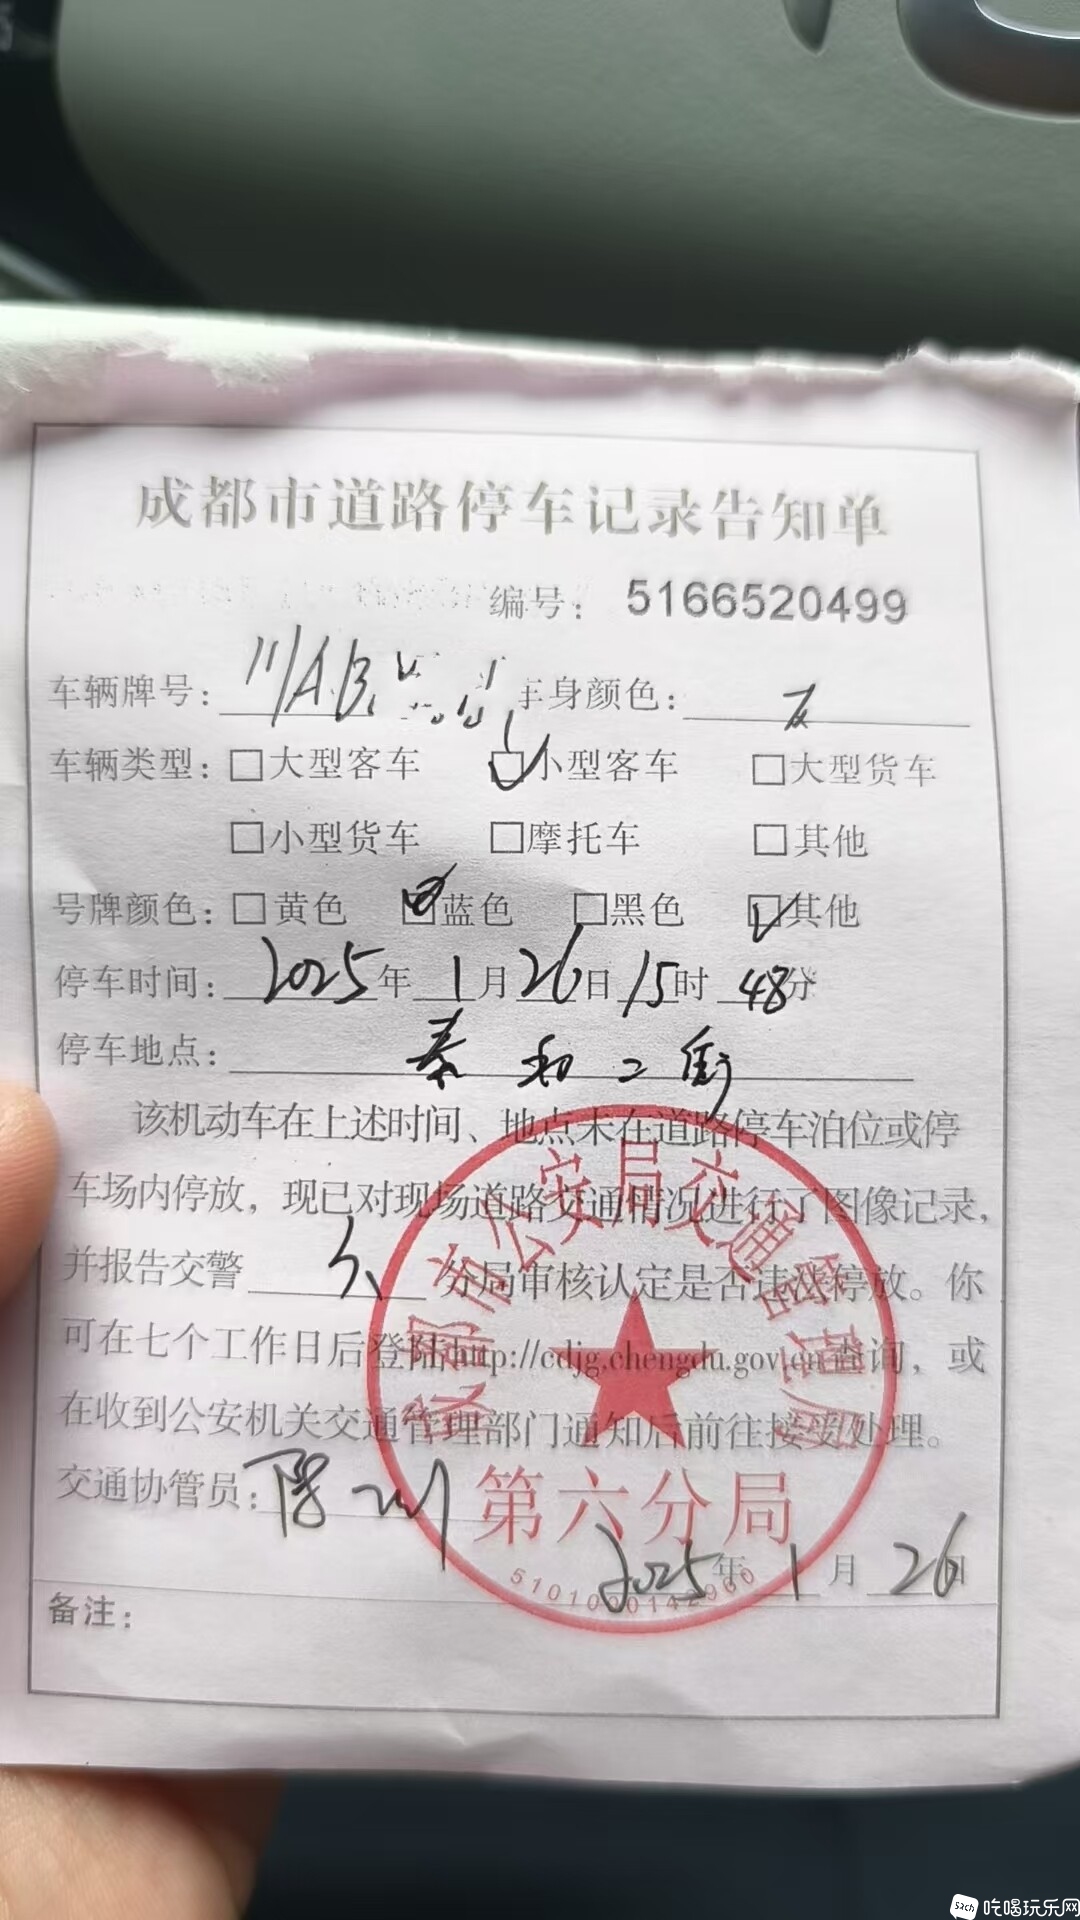 成都市道路停车记录告知单
编号: 5166520499
车辆牌号: 川AB 车身颜色: 灰
车辆类型: □大型客车 □小型客车 □大型货车
□小型货车 □摩托车 □其他
号牌颜色: □黄色 □蓝色 □黑色 □其他
停车时间: 2025年1月26日15时48分
停车地点: 泰和二街
该机动车在上述时间、地点未在道路停车泊位或停
车场内停放，现已对现场道路交通情况进行了图像记录，
并报告交警 六 分局审核认定是否违法停放。你
可在七个工作日后登陆http://cdjg.chengdu.gov.cn查询，或
在收到公安机关交通管理部门通知后前往接受处理。
交通协管员:
2025年1月26日
备注:
成都市公安局交通管理局
第六分局
5101000142960
吃喝玩乐网